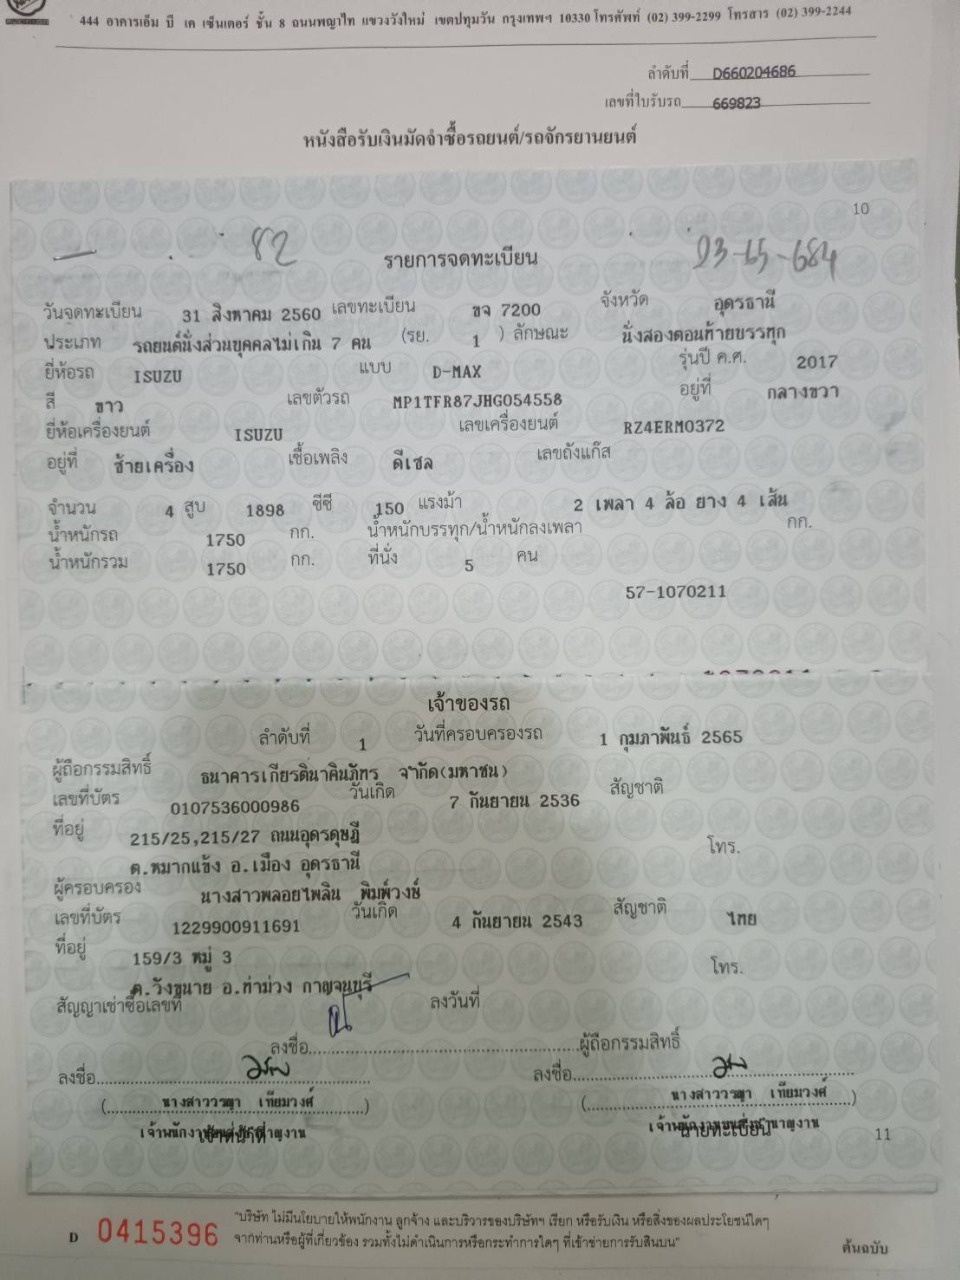 444 อาคารเอ็ม บี เค เซ็นเตอร์ ชั้น 8 ถนนพญาไท แขวงวังใหม่ เขตปทุมวัน กรุงเทพฯ 10330 โทรศัพท์ (02) 399-2299 โทรสาร (02) 399-2244
ลำดับที่ D660204686
เลขที่ใบรับรถ 669823
หนังสือรับเงินมัดจำซื้อรถยนต์/รถจักรยานยนต์
10
82
รายการจดทะเบียน
วันจดทะเบียน 31 สิงหาคม 2560 เลขทะเบียน ขจ 7200 จังหวัด อุดรธานี
ประเภท รถยนต์นั่งส่วนบุคคลไม่เกิน 7 คน (รย. 1 ) ลักษณะ นั่งสองตอนท้ายบรรทุก
ยี่ห้อรถ ISUZU แบบ D-MAX รุ่นปี ค.ศ. 2017
สี ขาว เลขตัวรถ MP1TFR87JHG054558 อยู่ที่ กลางขวา
ยี่ห้อเครื่องยนต์ ISUZU เลขเครื่องยนต์ RZ4ERM0372
อยู่ที่ ซ้ายเครื่อง เชื้อเพลิง ดีเซล เลขถังแก๊ส
จำนวน 4 สูบ 1898 ซีซี 150 แรงม้า 2 เพลา 4 ล้อ ยาง 4 เส้น
น้ำหนักรถ 1750 กก. น้ำหนักบรรทุก/น้ำหนักลงเพลา กก.
น้ำหนักรวม 1750 กก. ที่นั่ง 5 คน
57-1070211
เจ้าของรถ
ลำดับที่ 1 วันที่ครอบครองรถ 1 กุมภาพันธ์ 2565
ผู้ถือกรรมสิทธิ์ ธนาคารเกียรตินาคินภัทร จำกัด(มหาชน)
เลขที่บัตร 0107536000986 วันเกิด 7 กันยายน 2536 สัญชาติ
ที่อยู่ 215/25,215/27 ถนนอุดรดุษฎี
ต.หมากแข้ง อ.เมือง อุดรธานี โทร.
ผู้ครอบครอง นางสาวพลอยไพลิน พิมพ์วงษ์
เลขที่บัตร 1229900911691 วันเกิด 4 กันยายน 2543 สัญชาติ ไทย
ที่อยู่ 159/3 หมู่ 3
ต.วังขนาย อ.ท่าม่วง กาญจนบุรี โทร.
สัญญาเช่าซื้อเลขที่ ลงวันที่
ลงชื่อ ผู้ถือกรรมสิทธิ์
ลงชื่อ ลงชื่อ
(นางสาววรญา เทียมวงศ์) (นางสาววรญา เทียมวงศ์)
11
D 0415396
"บริษัท ไม่มีนโยบายให้พนักงาน ลูกจ้าง และบริวารของบริษัทฯ เรียก หรือรับเงิน หรือสิ่งของผลประโยชน์ใดๆ
จากท่านหรือผู้ที่เกี่ยวข้อง รวมทั้งไม่ดำเนินการหรือกระทำการใดๆ ที่เข้าข่ายการรับสินบน"
ต้นฉบับ